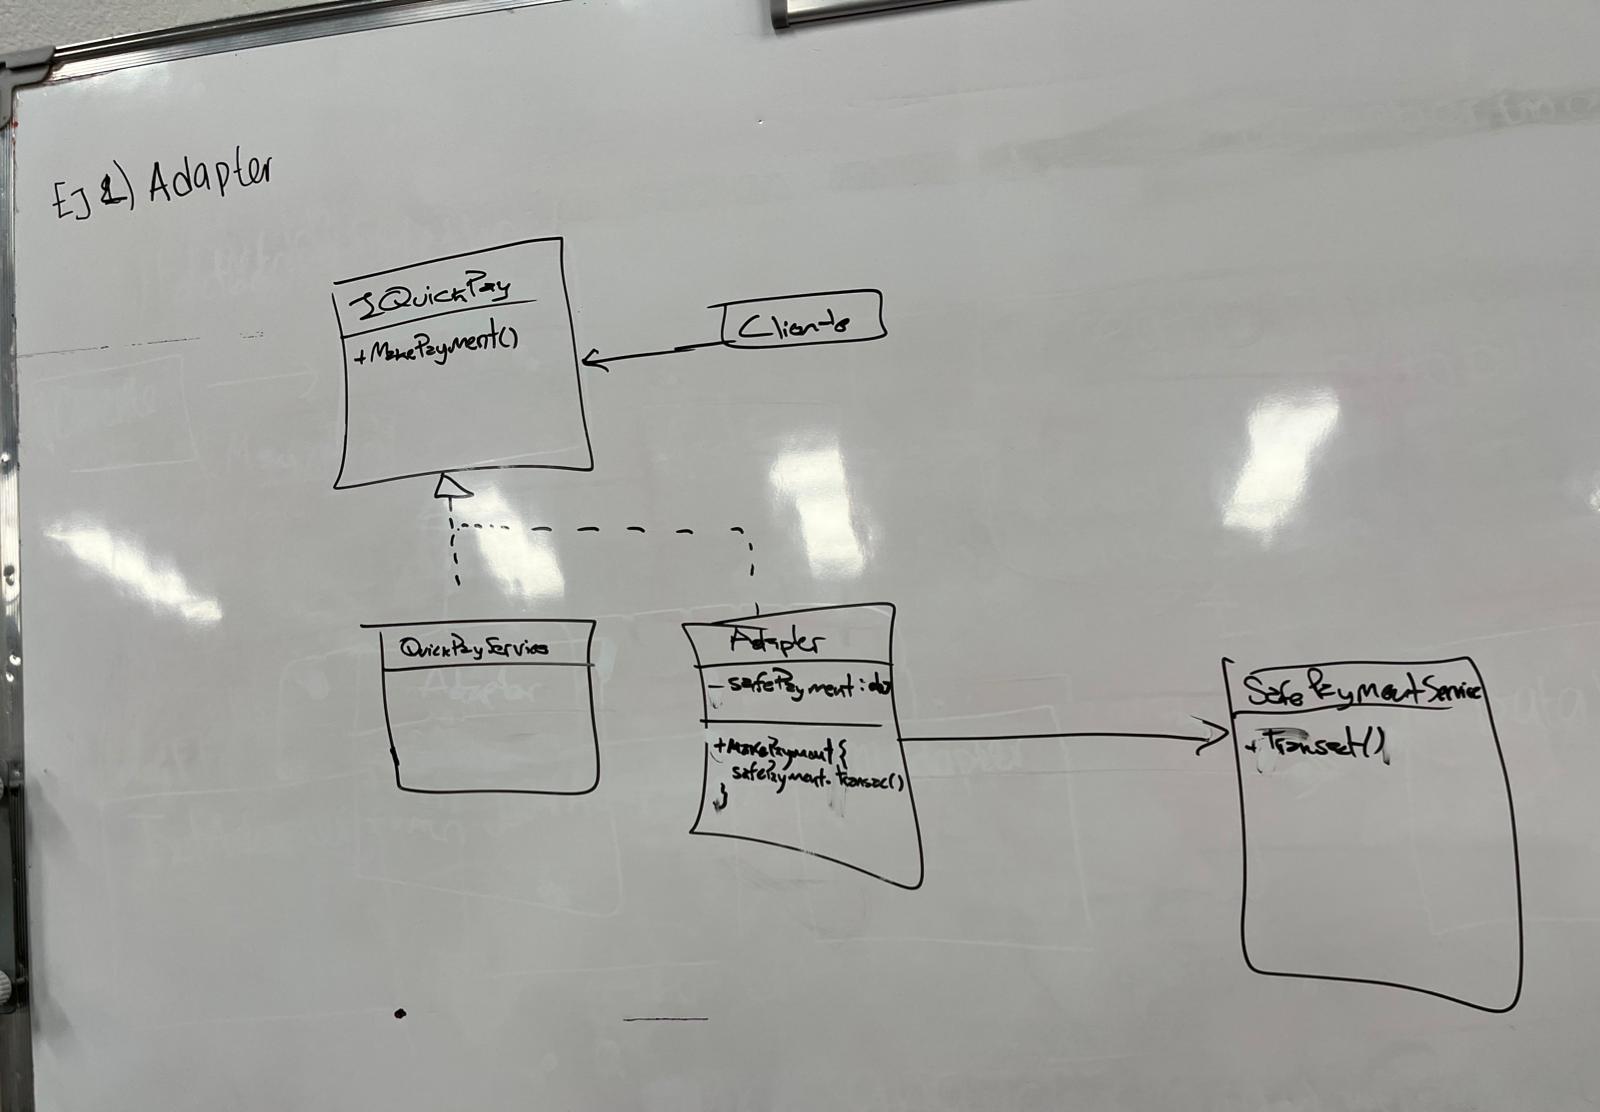 Ej 1) Adapter
IQuickPay
+MakePayment()
Cliente
QuickPayService
Adapter
- safePayment:
+MakePayment{
safePayment.Transac()
}
SafePaymentService
+ Transact()